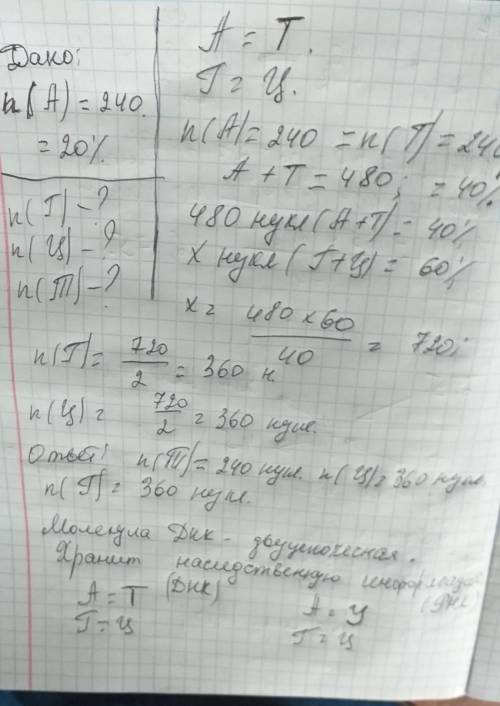 Дано:
n(А) = 240.
= 20%
n(Г) - ?
n(Ц) - ?
n(Т) - ?
А = Т.
Г = Ц.
n(А) = 240 = n(Т) = 240
А + Т = 480; = 40%
480 нукл (А+Т) = 40%
х нукл (Г+Ц) = 60%
х = 480 х 60 / 40 = 720;
n(Г) = 720/2 = 360 н.
n(Ц) = 720/2 = 360 нукл.
Ответ: n(Т) = 240 нукл. n(Ц) = 360 нукл.
n(Г) = 360 нукл.
Молекула ДНК - двуцепочесная.
Хранит наследственную информацию
А = Т (ДНК)
Г = Ц
А = У
Г = Ц